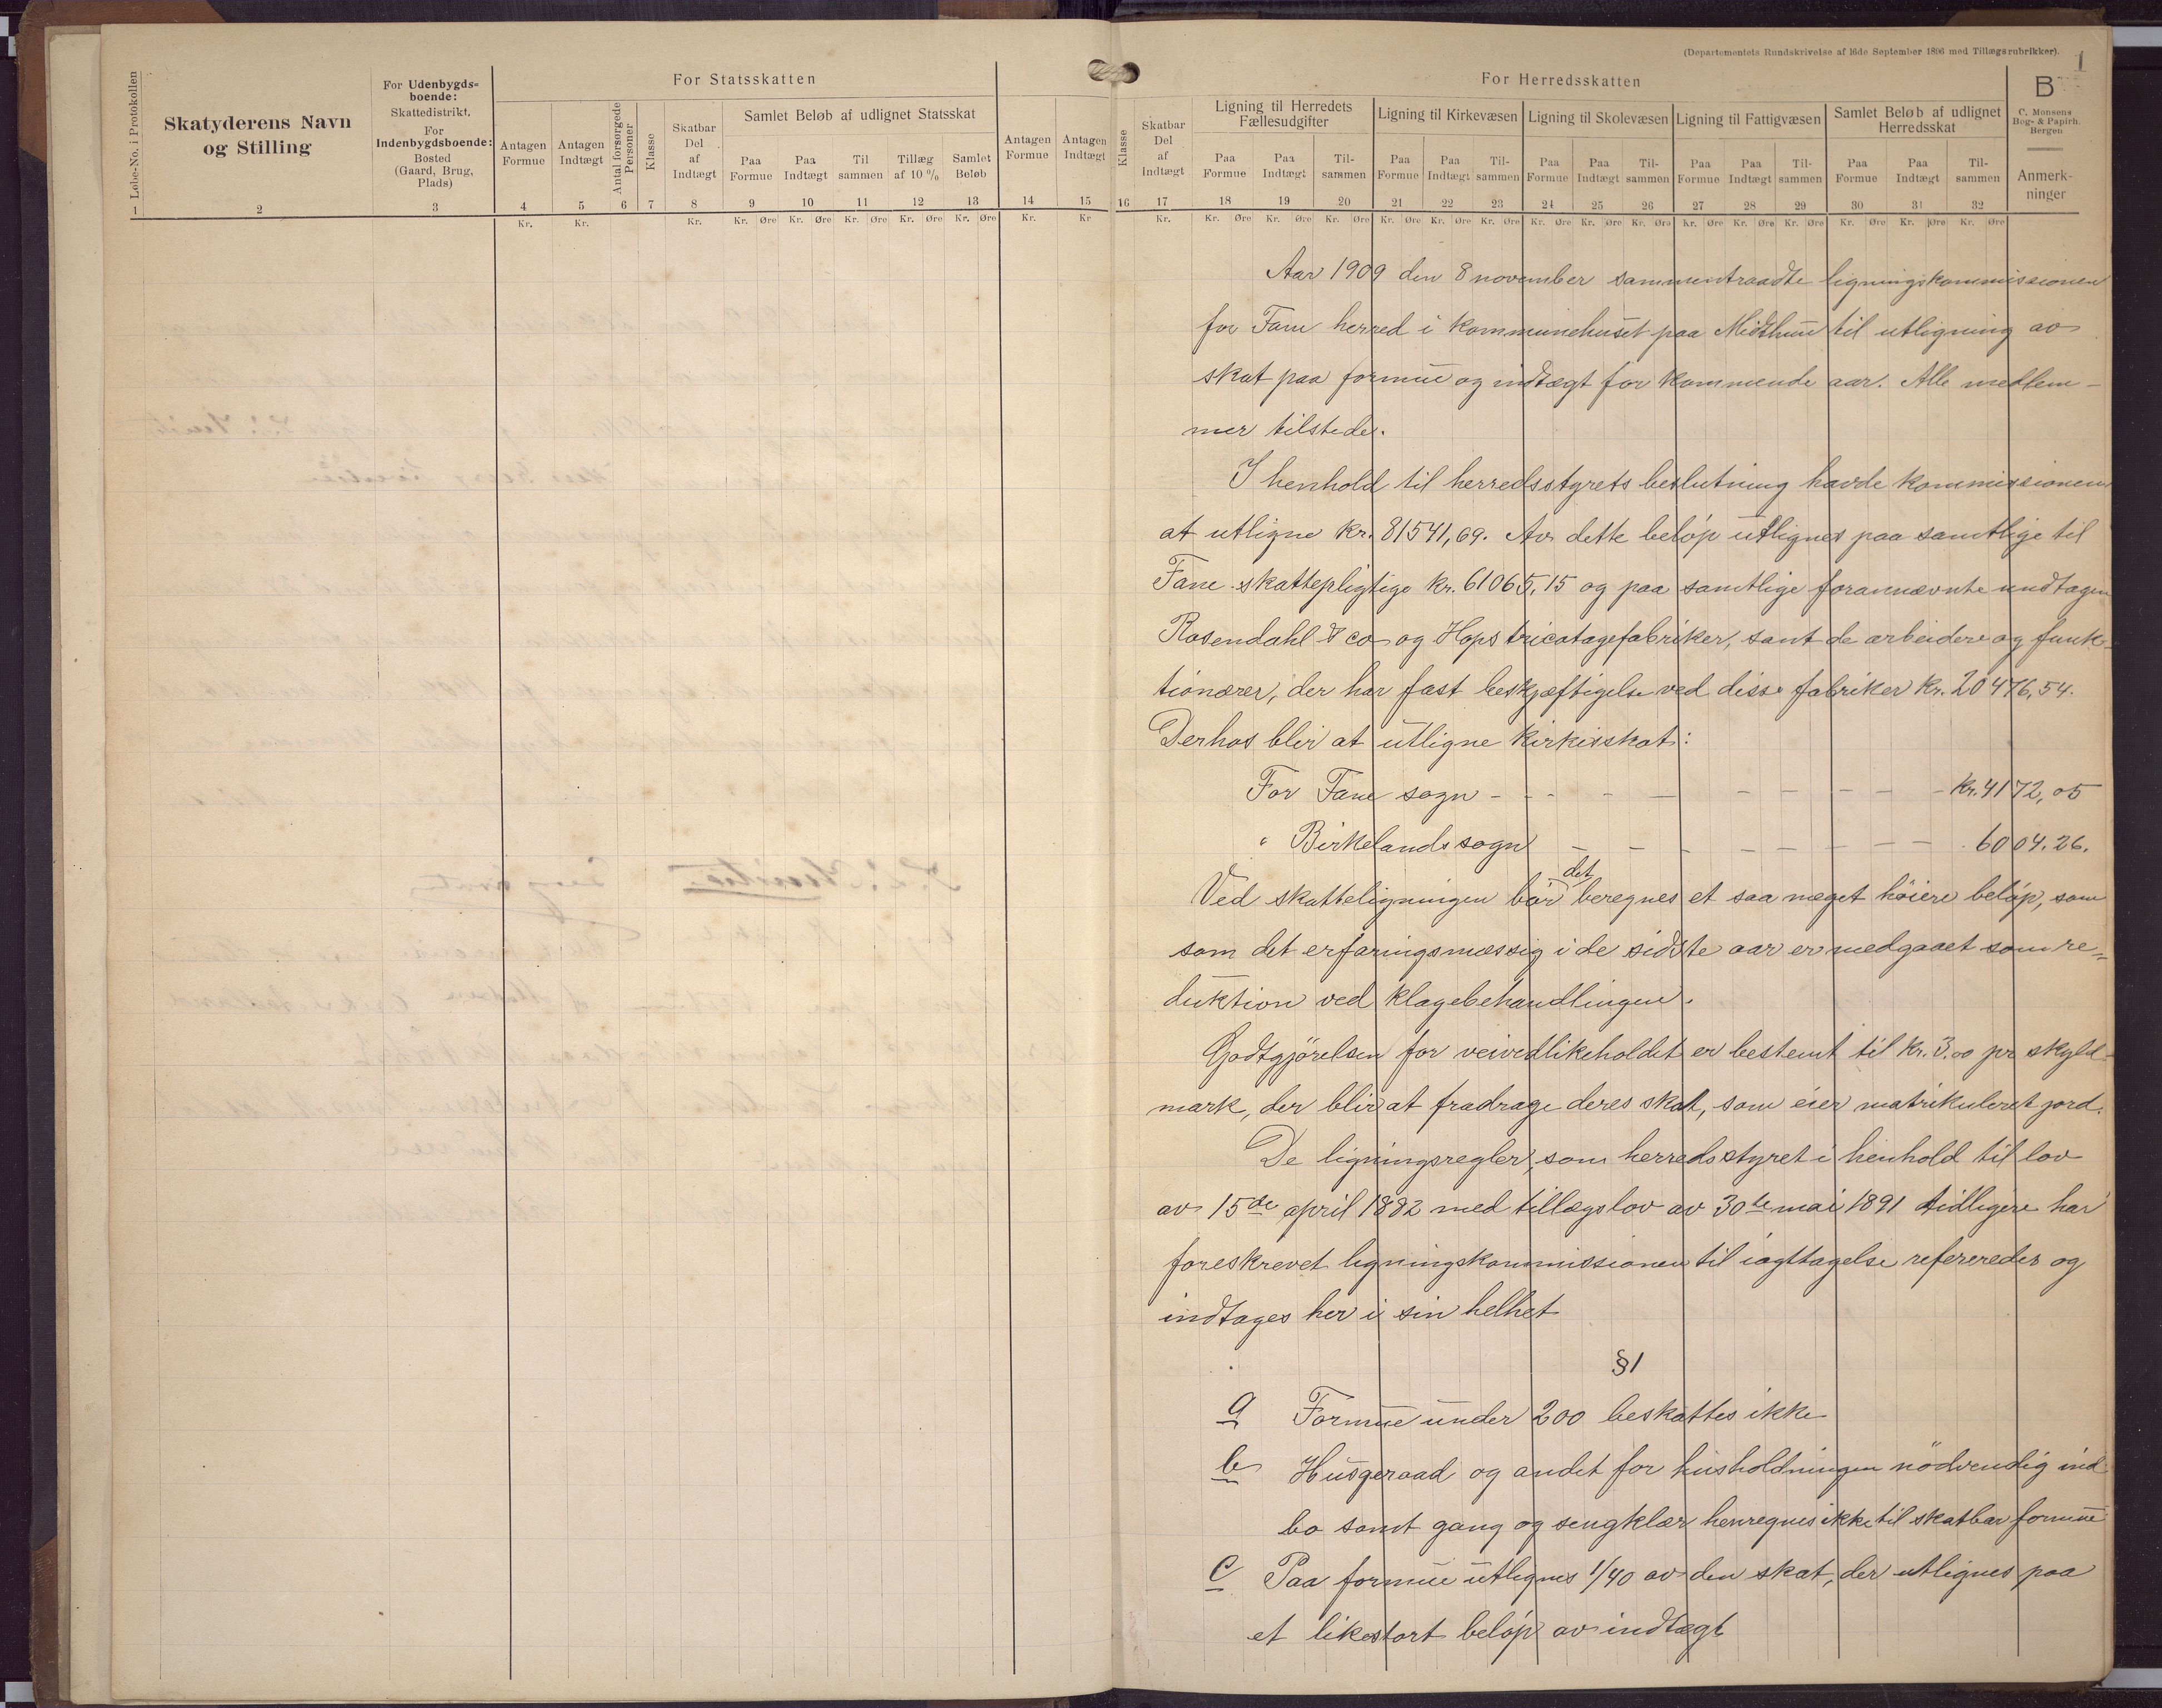 (Departementets Rundskrivelse af 16de September 1896 med Tillægsrubrikker).
1
Løbe-No. i Protokollen
Skatyderens Navn
og Stilling
For Udenbygds-
boende:
Skattedistrikt.
For
Indenbygdsboende:
Bosted
(Gaard, Brug,
Plads)
For Statsskatten
Antagen
Formue
Antagen
Indtægt
Antal forsørgede
Personer
Klasse
Skatbar
Del
af
Indtægt
Samlet Beløb af udlignet Statsskat
Paa
Formue
Paa
Indtægt
Til
sammen
Tillæg
af 10 %
Samlet
Beløb
Antagen
Formue
Antagen
Indtægt
1 2 3 4 5 6 7 8 9 10 11 12 13 14 15
Kr. Kr. Kr. Kr. Øre Kr. Øre Kr. Øre Kr. Øre Kr. Øre Kr. Kr
For Herredsskatten
Klasse
Skatbar
Del
af
Indtægt
Ligning til Herredets
Fællesudgifter
Ligning til Kirkevæsen
Ligning til Skolevæsen
Ligning til Fattigvæsen
Samlet Beløb af udlignet
Herredsskat
B
C. Monsens
Bog- & Papirh.
Bergen
Anmerk-
ninger
Paa
Formue
Paa
Indtægt
Til-
sammen
Paa
Formue
Paa
Indtægt
Til-
sammen
Paa
Formue
Paa
Indtægt
Til-
sammen
Paa
Formue
Paa
Indtægt
Til-
sammen
Paa
Formue
Paa
Indtægt
Til-
sammen
16 17 18 19 20 21 22 23 24 25 26 27 28 29 30 31 32
Kr. Kr. Øre Kr. Øre Kr. Øre Kr. Øre Kr. Øre Kr. Øre Kr. Øre Kr. Øre Kr. Øre Kr. Øre Kr. Øre Kr. Øre Kr. Øre Kr. Øre Kr. Øre
Aar 1909 den 8 november sammentraadte ligningskommissionen
for Fane herred i kommunehuset paa Midthun til utligning av
skat paa formue og indtægt for kommende aar. Alle medlem-
mer tilstede.
I henhold til herredsstyrets beslutning havde kommissionen
at utligne kr. 81541,69. Av dette beløp utlignes paa samtlige til
Fane skattepligtige kr. 61065,15 og paa samtlige forannævnte undtagen
Rosendahl & co og Hops tricotagefabriker, samt de arbeidere og funk-
tionærer, der har fast beskjæftigelse ved disse fabriker kr. 20476,54.
Derhos blir at utligne kirkeskat:
For Fane sogn - - - - - - - - - kr. 4172,05
" Birkelands sogn - - - - - - - - 6004.26.
Ved skatteligningen bør det beregnes et saa meget høiere beløp, som
som det erfaringsmæssig i de sidste aar er medgaaet som re-
duktion ved klagebehandlingen.
Godtgjørelsen for veivedlikeholdet er bestemt til kr. 3.00 pr skyld-
mark, der blir at fradrage deres skat, som eier matrikuleret jord.
De ligningsregler, som herredsstyret i henhold til lov
av 15de april 1882 med tillægslov av 30te mai 1891 tidligere har
foreskrevet ligningskommissionen til iagttagelse refereredes og
indtages her i sin helhet
§1
a Formue under 200 beskattes ikke
b Husgeraad og andet for husholdningen nødvendig ind
bo samt gang og sengklær henregnes ikke til skatbar formue
c Paa formue utlignes 1/40 av den skat, der utlignes paa
et likestort beløp av indtægt